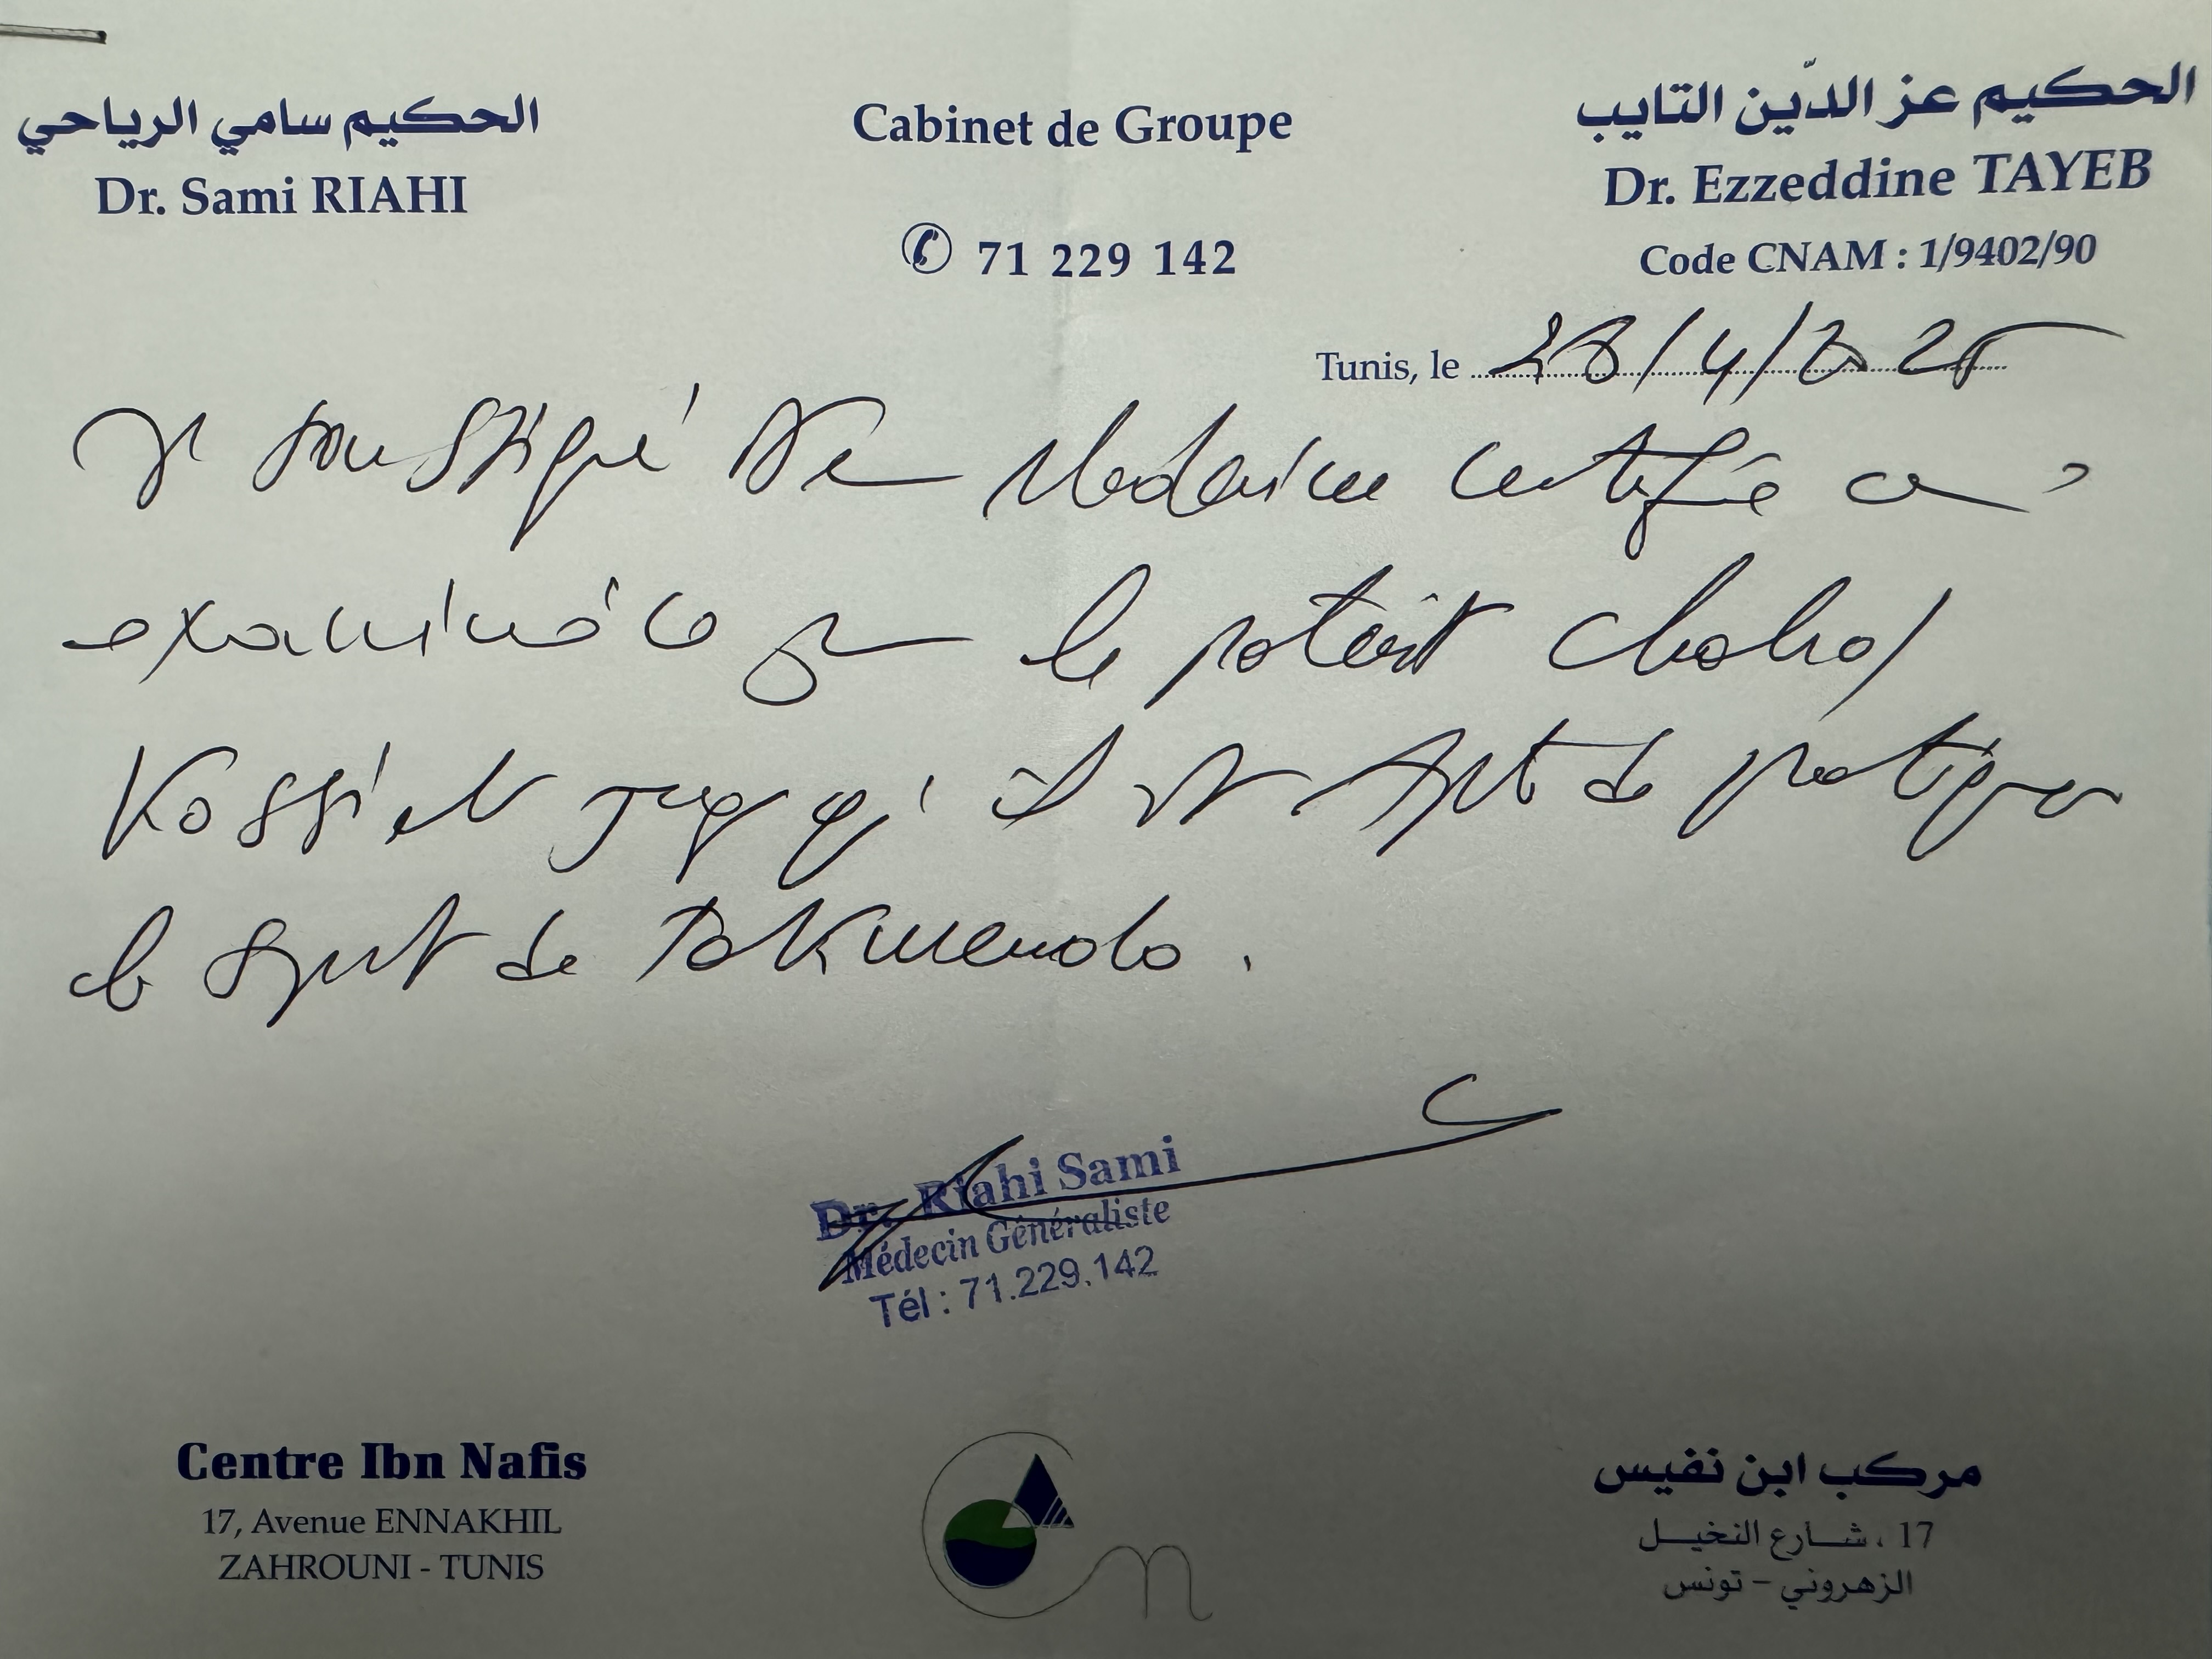 الحكيم سامي الرياحي
Dr. Sami RIAHI
Cabinet de Groupe
71 229 142
الحكيم عز الدّين التايب
Dr. Ezzeddine TAYEB
Code CNAM : 1/9402/90
Tunis, le 28/4/2025
Je soussigné Dr en Médecine certifie avoir
examiné ce jour le patient
Kossi et juge qu'il est Apt de pratiquer
le sport de Tekwendo.
Dr. Riahi Sami
Médecin Généraliste
Tél : 71.229.142
Centre Ibn Nafis
17, Avenue ENNAKHIL
ZAHROUNI - TUNIS
مركب ابن نفيس
17 ، شارع النخيل
الزهروني - تونس